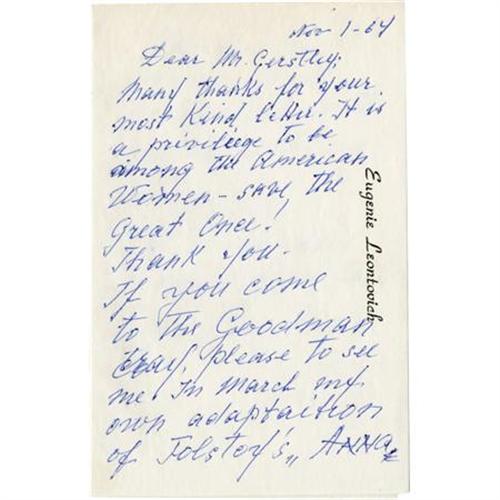 Nov 1-64
Dear Mr. Gerstley;
Many thanks for your
most Kind letter. It is
a priviliege to be
among the American
Women - save, the
Great One!
Thank You -
If you come
to The Goodman
please to see
me In March my
own adaptaitron
of Tolstoy's „ ANNA
Eugenie Leontovich